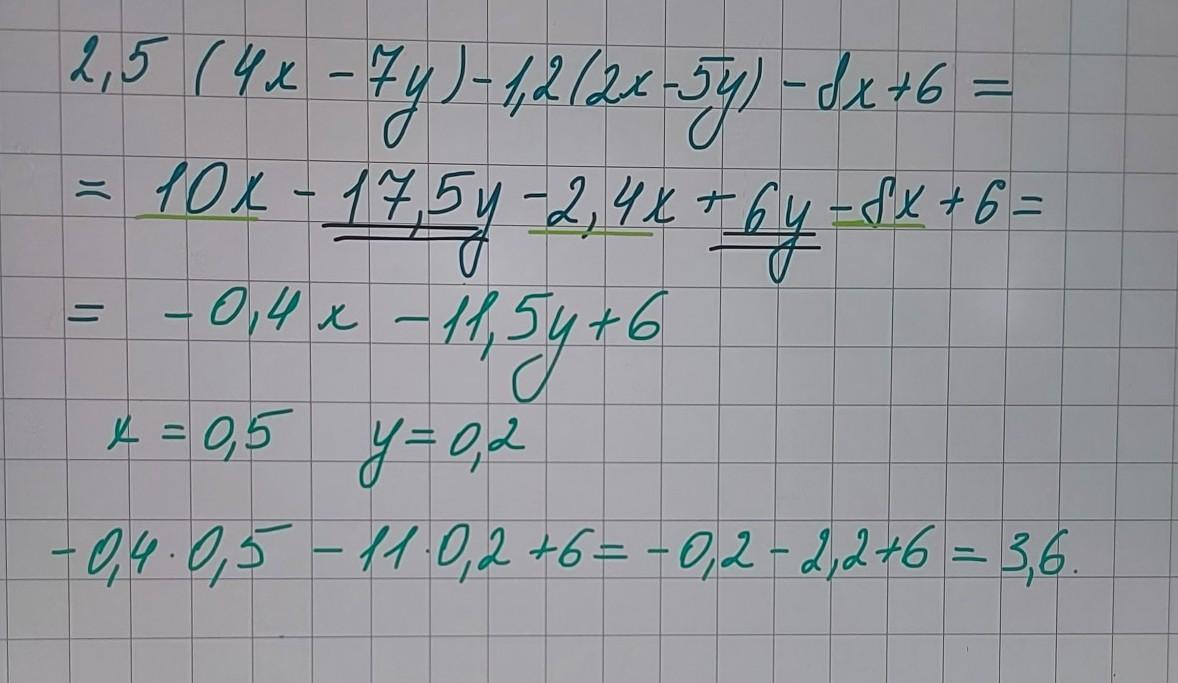 2,5 (4x - 7y) - 1,2(2x - 5y) - 8x + 6 =
= 10x - 17,5y - 2,4x + 6y - 8x + 6 =
= - 0,4x - 11,5y + 6
x = 0,5 y = 0,2
- 0,4 · 0,5 - 11 · 0,2 + 6 = - 0,2 - 2,2 + 6 = 3,6.